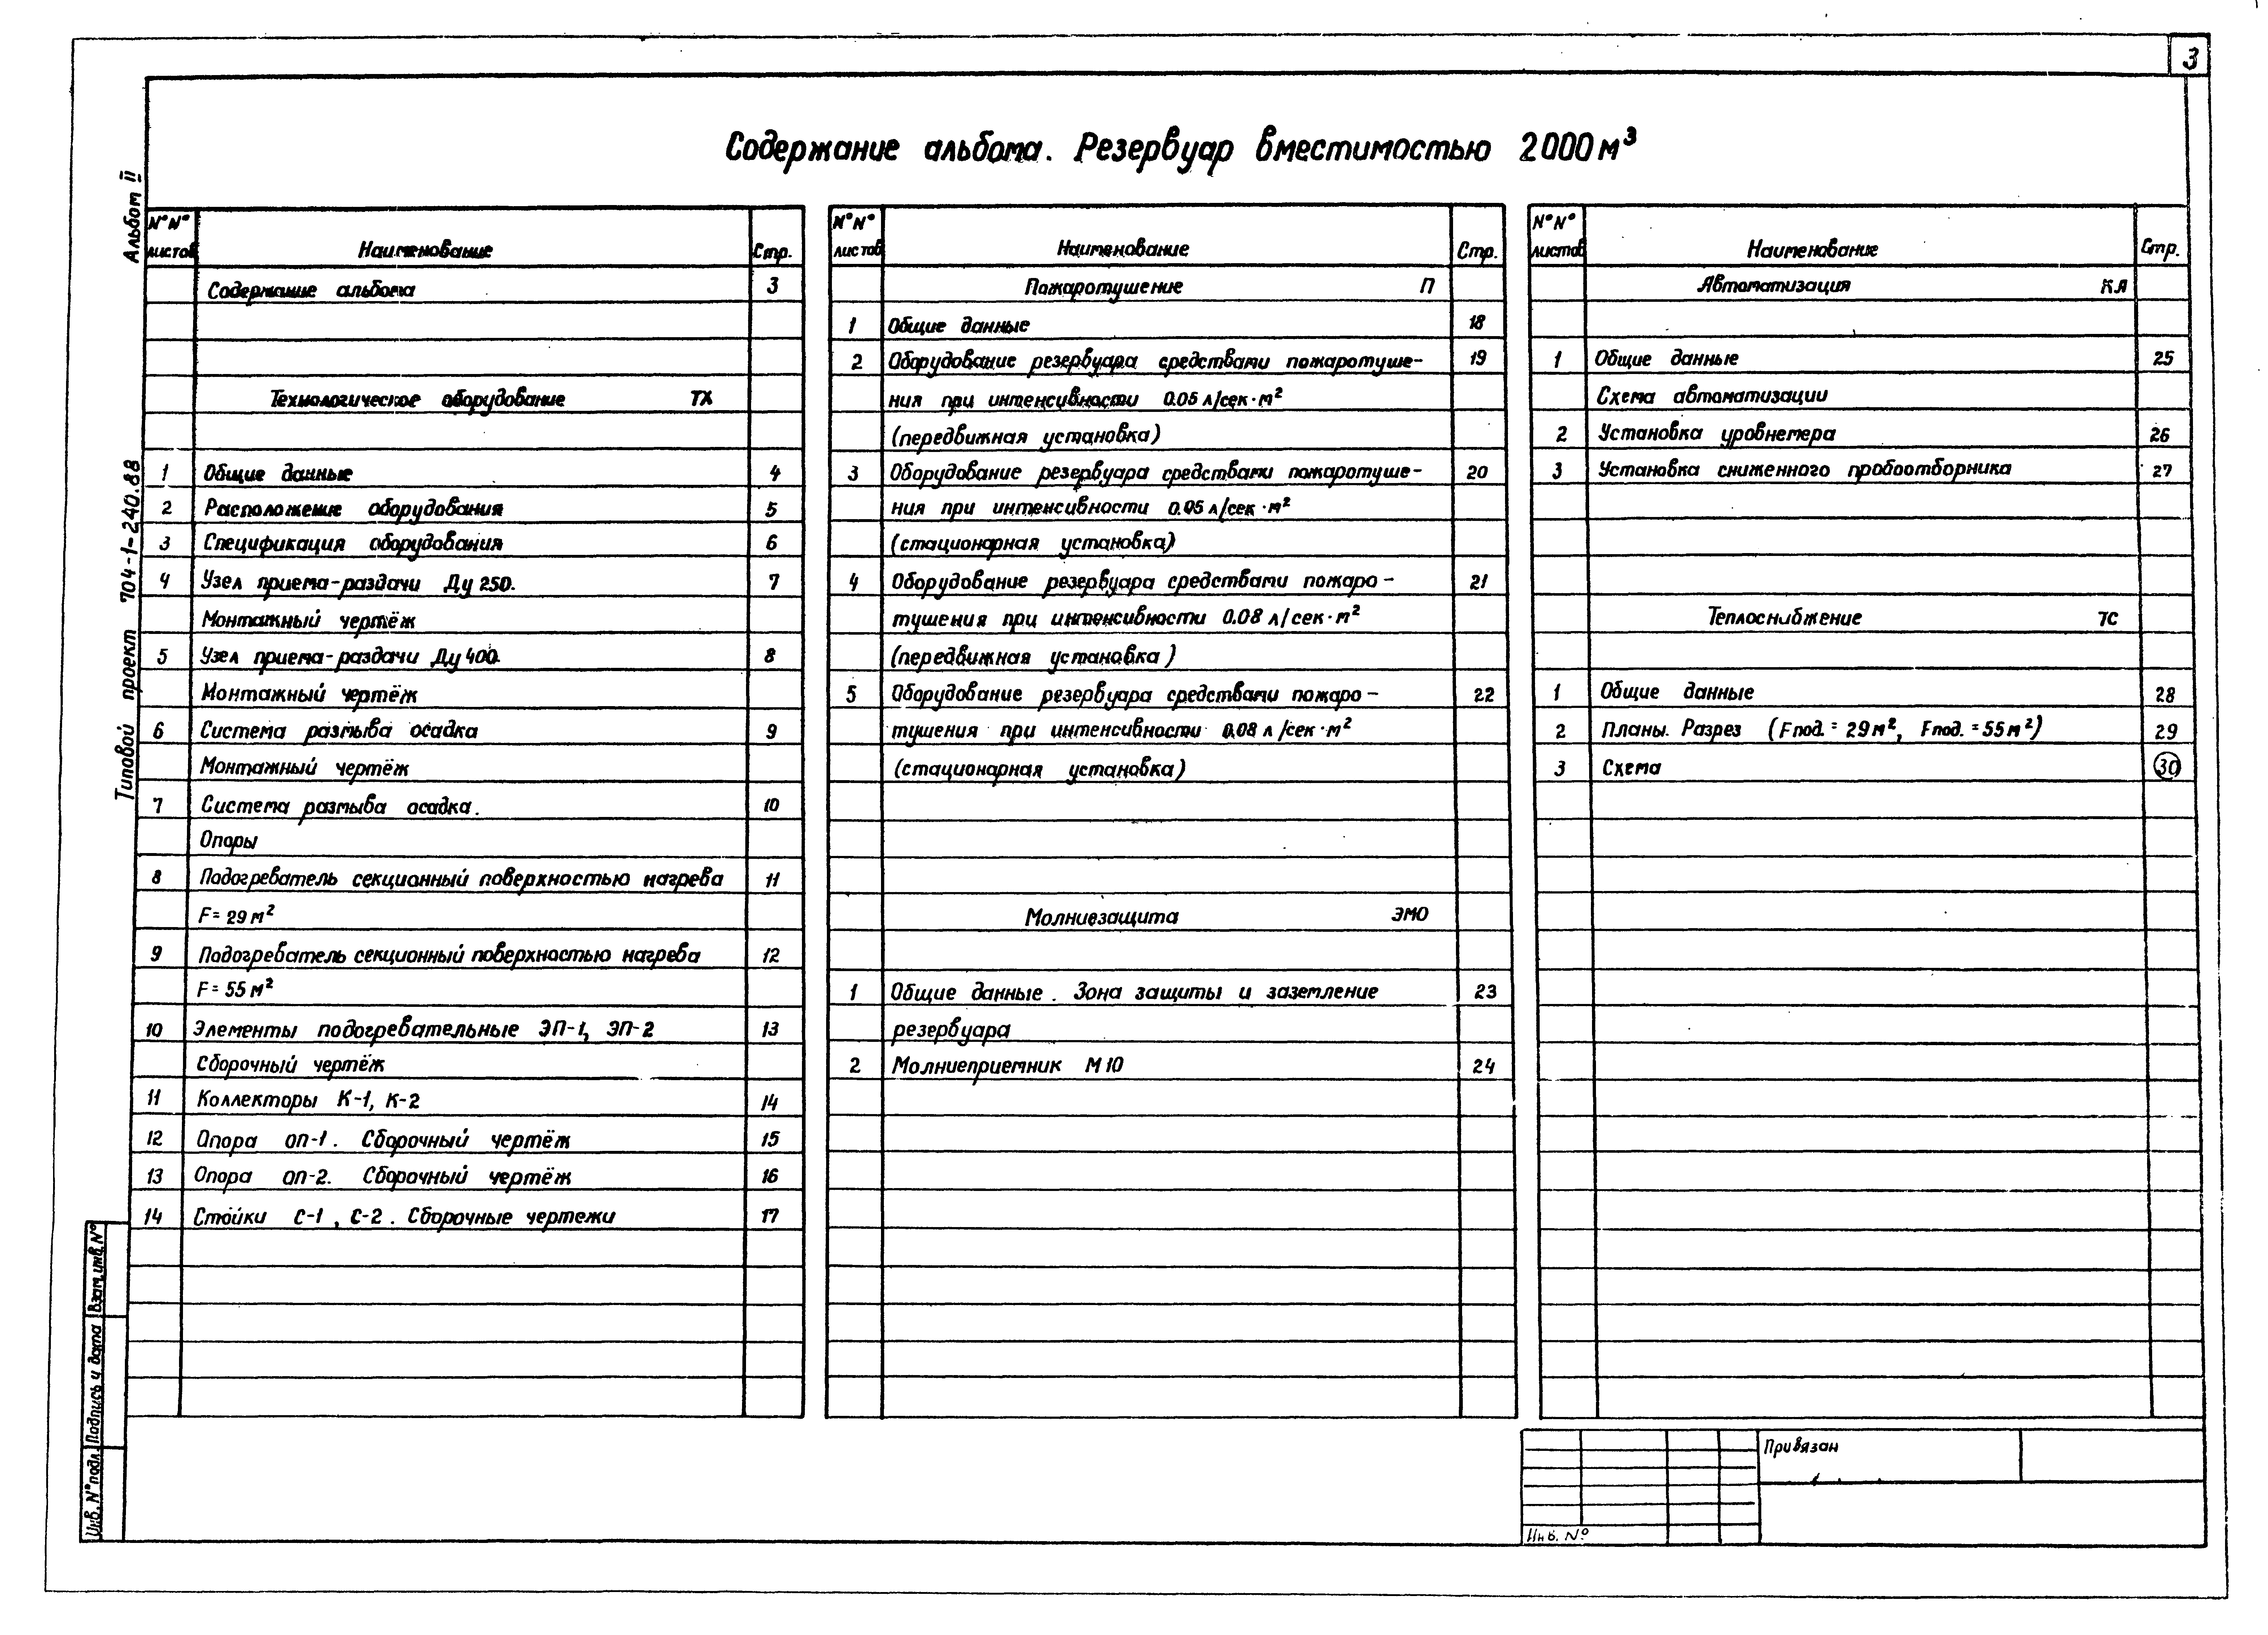 3
Содержание альбома. Резервуар вместимостью 2000 м³
Альбом II
Типовой проект 704-1-240.88
N°N° листов Наименование Стр.
Содержание альбома 3
Технологическое оборудование ТХ
1 Общие данные 4
2 Расположение оборудования 5
3 Спецификация оборудования 6
4 Узел приема-раздачи Ду 250. 7
Монтажный чертёж
5 Узел приема-раздачи Ду 400. 8
Монтажный чертёж
6 Система размыва осадка 9
Монтажный чертёж
7 Система размыва осадка. 10
Опоры
8 Подогреватель секционный поверхностью нагрева 11
F = 29 м²
9 Подогреватель секционный поверхностью нагрева 12
F = 55 м²
10 Элементы подогревательные ЭП-1, ЭП-2 13
Сборочный чертёж
11 Коллекторы К-1, К-2 14
12 Опора ОП-1. Сборочный чертёж 15
13 Опора ОП-2. Сборочный чертёж 16
14 Стойки С-1, С-2. Сборочные чертежи 17
N°N° листов Наименование Стр.
Пожаротушение П
1 Общие данные 18
2 Оборудование резервуара средствами пожаротуше- 19
ния при интенсивности 0.05 л/сек·м²
(передвижная установка)
3 Оборудование резервуара средствами пожаротуше- 20
ния при интенсивности 0.05 л/сек·м²
(стационарная установка)
4 Оборудование резервуара средствами пожаро- 21
тушения при интенсивности 0.08 л/сек·м²
(передвижная установка)
5 Оборудование резервуара средствами пожаро- 22
тушения при интенсивности 0.08 л/сек·м²
(стационарная установка)
Молниезащита ЭМО
1 Общие данные. Зона защиты и заземление 23
резервуара
2 Молниеприемник М10 24
N°N° листов Наименование Стр.
Автоматизация КА
1 Общие данные 25
Схема автоматизации
2 Установка уровнемера 26
3 Установка сниженного пробоотборника 27
Теплоснабжение ТС
1 Общие данные 28
2 Планы. Разрез (Fпод. = 29 м², Fпод. = 55 м²) 29
3 Схема 30
Инв. N° подл. Подпись и дата Взам. инв. N°
Привязан
Инв. N°